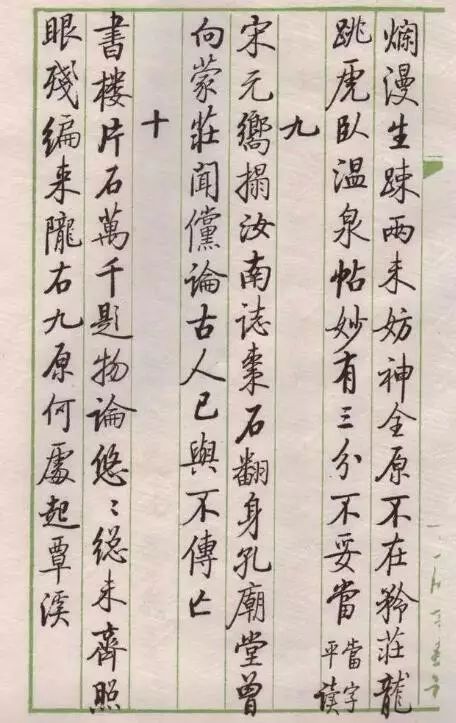 爛漫生踈兩未妨神全原不在矜莊龍
跳虎臥温泉帖妙有三分不妥當當字平讀
九
宋元嚮搨汝南誌棗石翻身孔廟堂曾
向蒙莊聞儻論古人已與不傳亡
十
書楼片石萬千題物論悠〻緫未齊照
眼殘編来隴右九原何處起覃溪